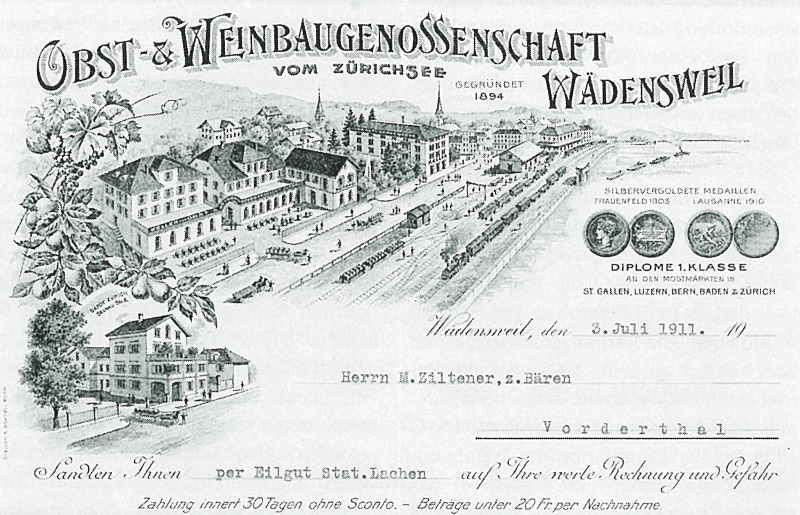 OBST- & WEINBAUGENOSSENSCHAFT
VOM ZÜRICHSEE
GEGRÜNDET
1894
WÄDENSWEIL
SILBERVERGOLDETE MEDAILLEN
FRAUENFELD 1903 LAUSANNE 1910
DIPLOME 1. KLASSE
AN DEN MOSTMÄRKTEN IN
ST. GALLEN, LUZERN, BERN, BADEN & ZÜRICH
Wädensweil, den 3. Juli 1911. 19
Herrn M.Ziltener, z.Bären
Vorderthal
Sandten Ihnen per Eilgut Stat. Lachen auf Ihre werte Rechnung und Gefahr
Zahlung innert 30 Tagen ohne Sconto. – Beträge unter 20 Fr. per Nachnahme.